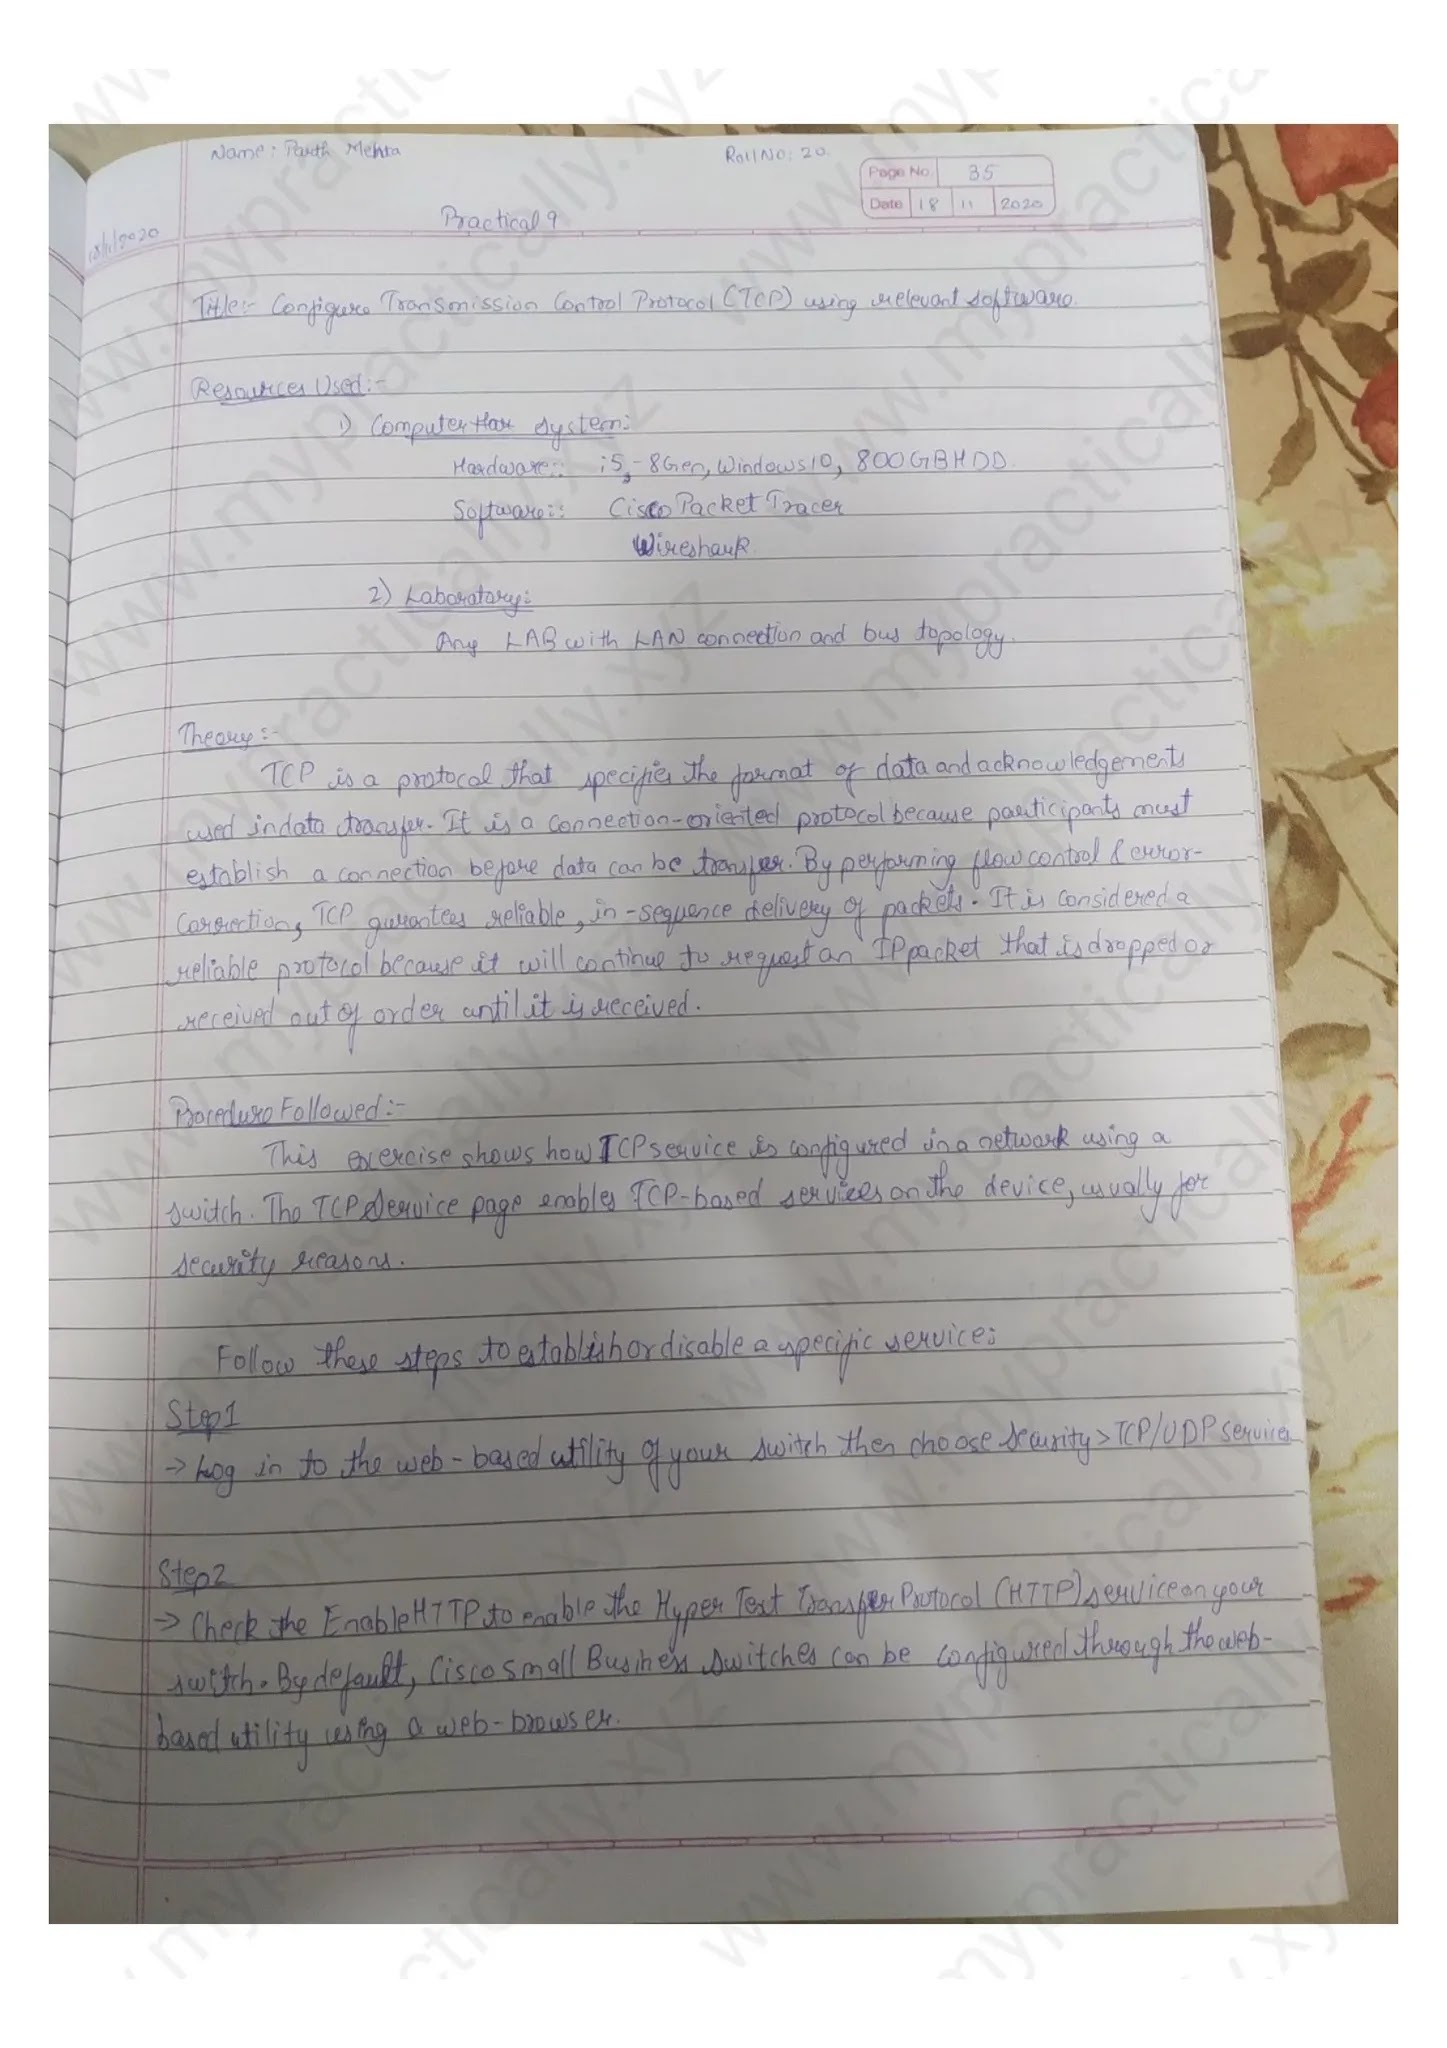 Name: Parth Mehta
Roll No: 20.
Page No. 35
Date 18 11 2020
18/11/2020
Practical 9
Title:- Configure Transmission Control Protocol (TCP) using relevant software.
Resources Used:-
1) Computer system:
Hardware:: i5,-8Gen, Windows10, 800GBHDD.
Software:: Cisco Packet Tracer
Wireshark.
2) Laboratory:
Any LAB with LAN connection and bus topology.
Theory:-
TCP is a protocol that specifies the format of data and acknowledgements
used in data transfer. It is a connection-oriented protocol because participants must
establish a connection before data can be transfer. By performing flow control & error-
correction, TCP gurantees reliable, in-sequence delivery of packets. It is considered a
reliable protocol because it will continue to request an IP packet that is dropped or
received out of order until it is received.
Procedure Followed:-
This exercise shows how TCP service is configured in a network using a
switch. The TCP Service page enables TCP-based services on the device, usually for
security reasons.
Follow these steps to establish or disable a specific service:
Step1
→ Log in to the web-based utility of your switch then choose Security > TCP/UDP Services
Step2
→ Check the Enable HTTP to enable the Hyper Text Transfer Protocol (HTTP) service on your
switch. By default, Cisco Small Business switches can be configured through the web-
based utility using a web-browser.
www.mypractically.xyz